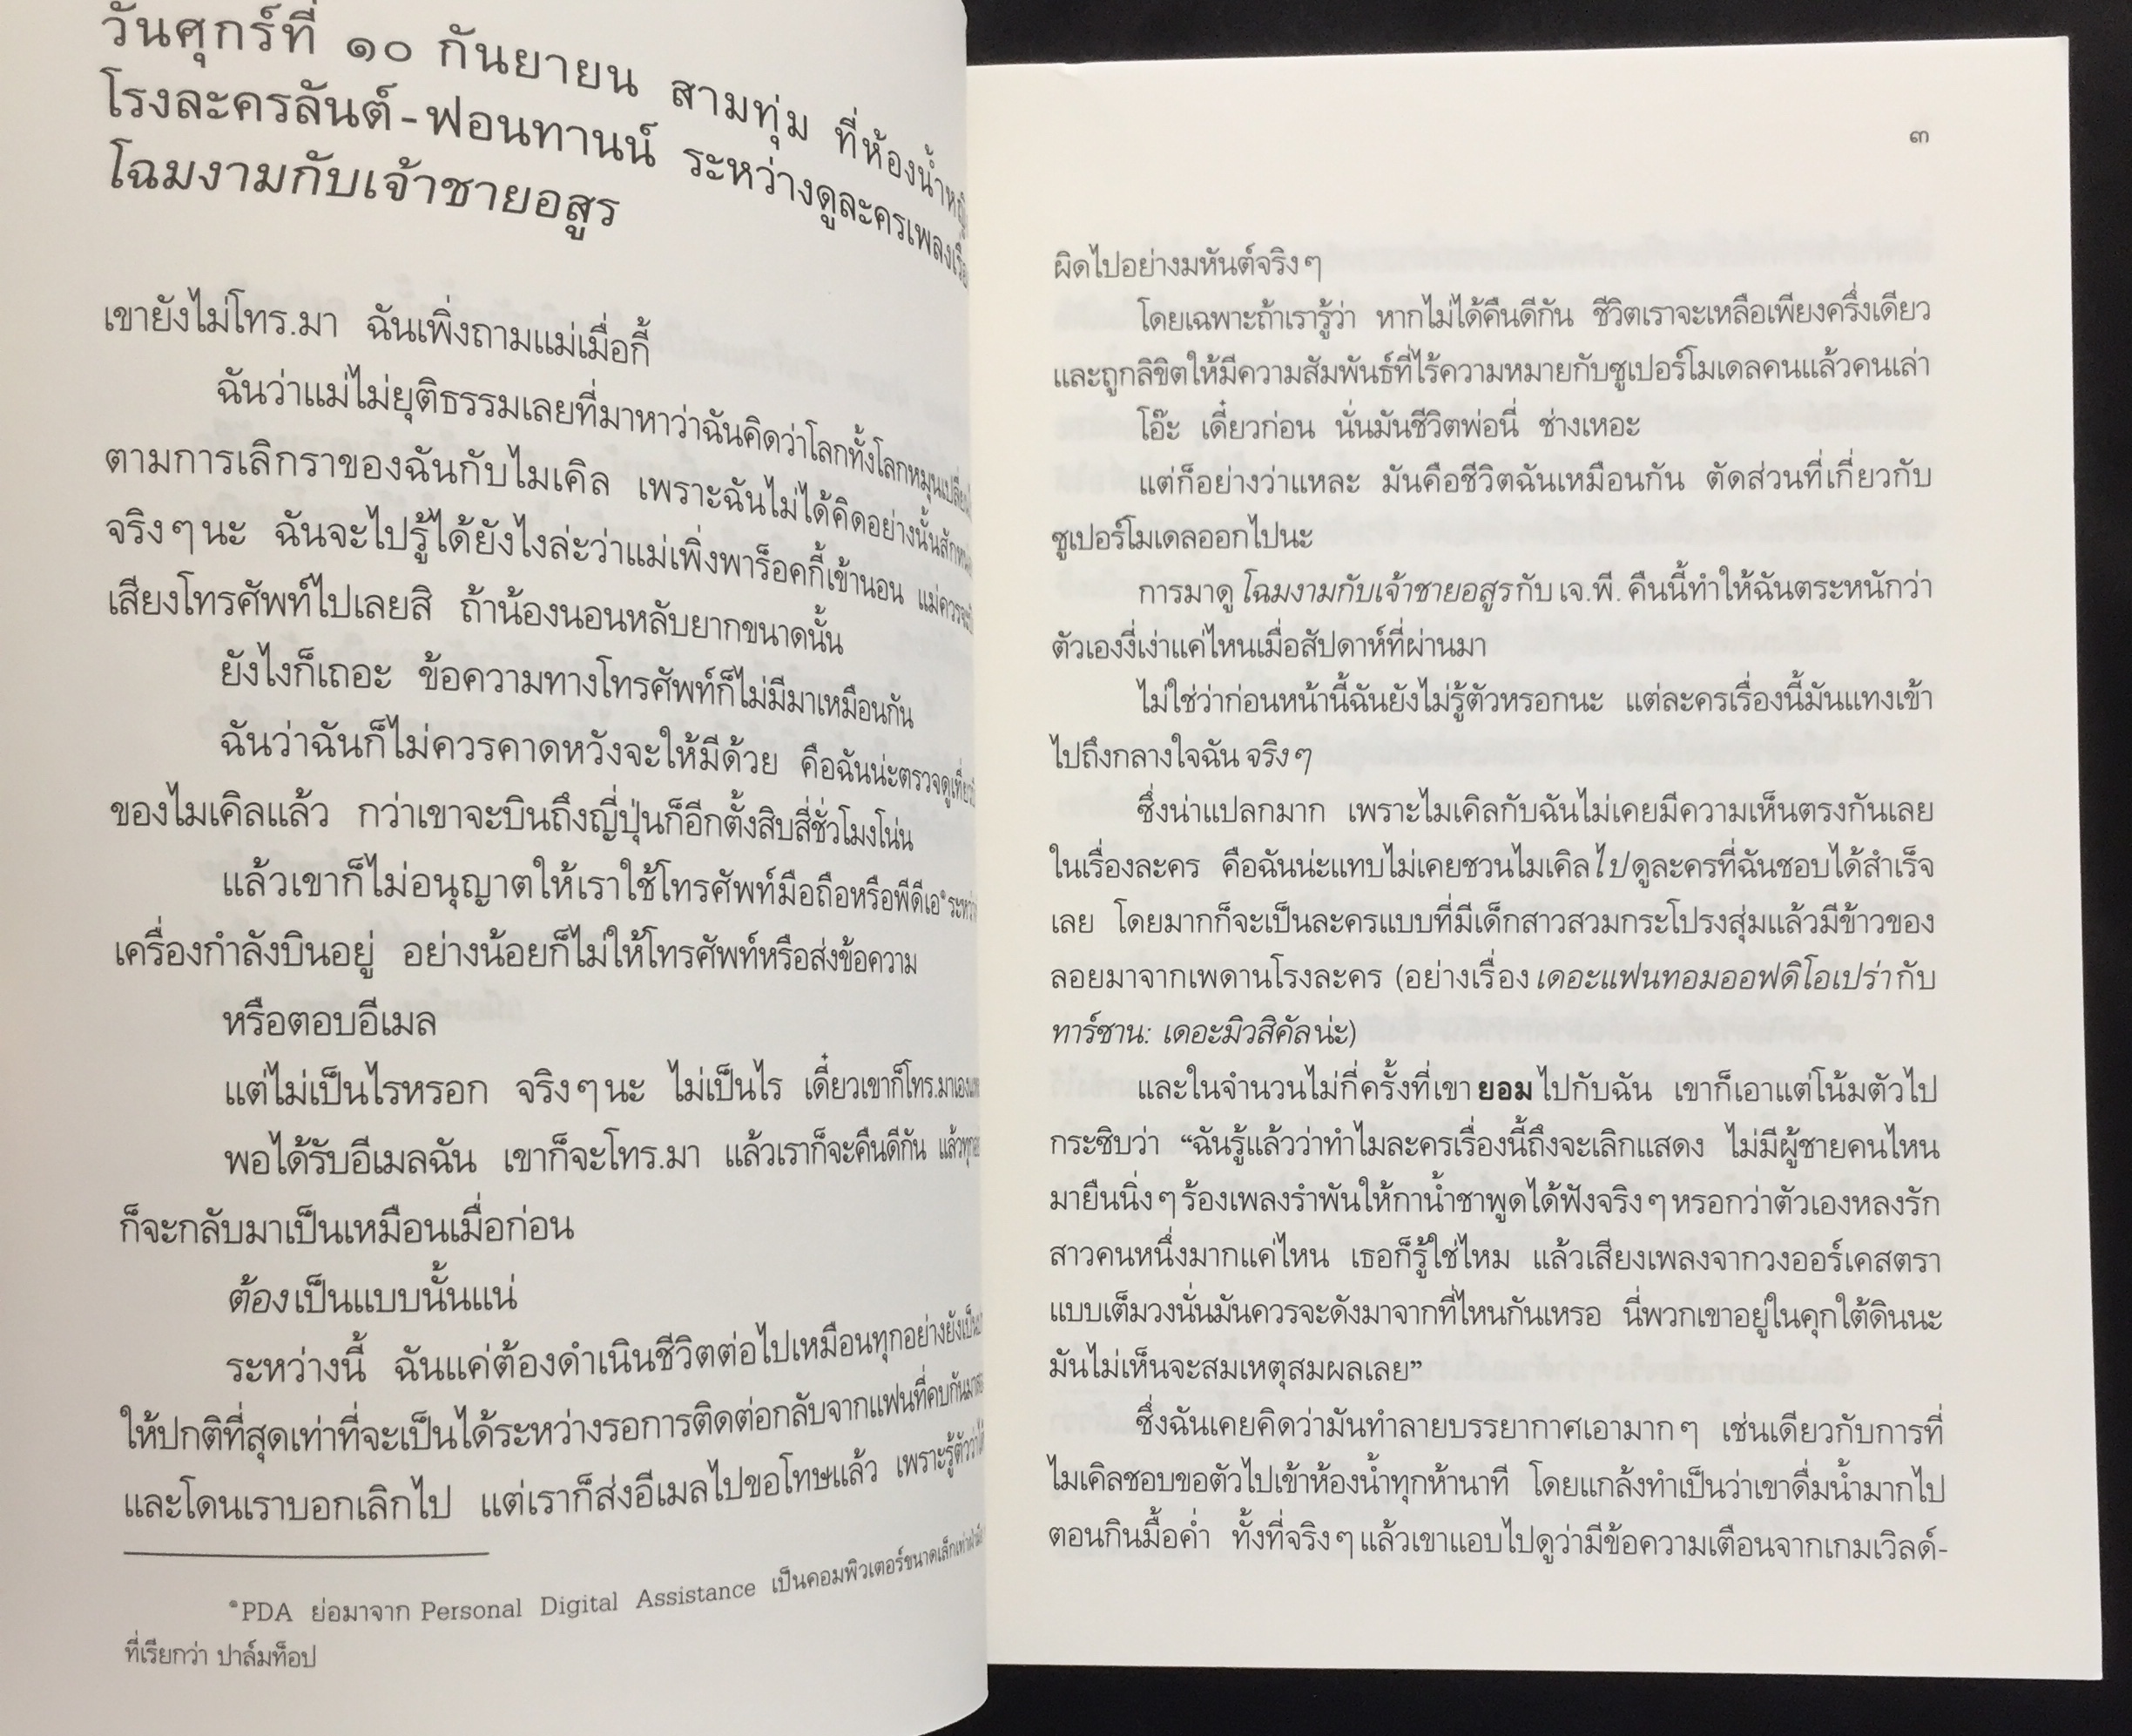 วันศุกร์ที่ ๑๐ กันยายน สามทุ่ม ที่ห้องน้ำหญิง
โรงละครลันต์-ฟอนทานน์ ระหว่างดูละครเพลงเรื่อง
โฉมงามกับเจ้าชายอสูร
เขายังไม่โทร.มา ฉันเพิ่งถามแม่เมื่อกี้
ฉันว่าแม่ไม่ยุติธรรมเลยที่มาหาว่าฉันคิดว่าโลกทั้งโลกหมุนเปลี่ยน
ตามการเลิกราของฉันกับไมเคิล เพราะฉันไม่ได้คิดอย่างนั้นสัก
จริงๆ นะ ฉันจะไปรู้ได้ยังไงล่ะว่าแม่เพิ่งพาร็อคกี้เข้านอน แม่ควร
เสียงโทรศัพท์ไปเลยสิ ถ้าน้องนอนหลับยากขนาดนั้น
ยังไงก็เถอะ ข้อความทางโทรศัพท์ก็ไม่มีมาเหมือนกัน
ฉันว่าฉันก็ไม่ควรคาดหวังจะให้มีด้วย คือฉันน่ะตรวจดู
ของไมเคิลแล้ว กว่าเขาจะบินถึงญี่ปุ่นก็อีกตั้งสิบสี่ชั่วโมงโน่น
แล้วเขาก็ไม่อนุญาตให้เราใช้โทรศัพท์มือถือหรือพีดีเอ* ระหว่าง
เครื่องกำลังบินอยู่ อย่างน้อยก็ไม่ให้โทรศัพท์หรือส่งข้อความ
หรือตอบอีเมล
แต่ไม่เป็นไรหรอก จริงๆ นะ ไม่เป็นไร เดี๋ยวเขาก็โทร.มาเอง
พอได้รับอีเมลฉัน เขาก็จะโทร.มา แล้วเราก็จะคืนดีกัน แล้วทุก
ก็จะกลับมาเป็นเหมือนเมื่อก่อน
ต้องเป็นแบบนั้นแน่
ระหว่างนี้ ฉันแค่ต้องดำเนินชีวิตต่อไปเหมือนทุกอย่างยังเป็น
ให้ปกติที่สุดเท่าที่จะเป็นได้ระหว่างรอการติดต่อกลับจากแฟนที่คบกันมา
และโดนเราบอกเลิกไป แต่เราก็ส่งอีเมลไปขอโทษแล้ว เพราะรู้ตัวว่า
*PDA ย่อมาจาก Personal Digital Assistance เป็นคอมพิวเตอร์ขนาดเล็กเท่าฝ่ามือ
ที่เรียกว่า ปาล์มท็อป
๓
ผิดไปอย่างมหันต์จริงๆ
โดยเฉพาะถ้าเรารู้ว่า หากไม่ได้คืนดีกัน ชีวิตเราจะเหลือเพียงครึ่งเดียว
และถูกลิขิตให้มีความสัมพันธ์ที่ไร้ความหมายกับซูเปอร์โมเดลคนแล้วคนเล่า
โอ๊ะ เดี๋ยวก่อน นั่นมันชีวิตพ่อนี่ ช่างเหอะ
แต่ก็อย่างว่าแหละ มันคือชีวิตฉันเหมือนกัน ตัดส่วนที่เกี่ยวกับ
ซูเปอร์โมเดลออกไปนะ
การมาดู โฉมงามกับเจ้าชายอสูร กับ เจ.พี. คืนนี้ทำให้ฉันตระหนักว่า
ตัวเองงี่เง่าแค่ไหนเมื่อสัปดาห์ที่ผ่านมา
ไม่ใช่ว่าก่อนหน้านี้ฉันยังไม่รู้ตัวหรอกนะ แต่ละครเรื่องนี้มันแทงเข้า
ไปถึงกลางใจฉัน จริงๆ
ซึ่งน่าแปลกมาก เพราะไมเคิลกับฉันไม่เคยมีความเห็นตรงกันเลย
ในเรื่องละคร คือฉันน่ะแทบไม่เคยชวนไมเคิล ไป ดูละครที่ฉันชอบได้สำเร็จ
เลย โดยมากก็จะเป็นละครแบบที่มีเด็กสาวสวมกระโปรงสุ่มแล้วมีข้าวของ
ลอยมาจากเพดานโรงละคร (อย่างเรื่อง เดอะแฟนทอมออฟดิโอเปร่า กับ
ทาร์ซาน: เดอะมิวสิคัล น่ะ)
และในจำนวนไม่กี่ครั้งที่เขา ยอม ไปกับฉัน เขาก็เอาแต่โน้มตัวไป
กระซิบว่า “ฉันรู้แล้วว่าทำไมละครเรื่องนี้ถึงจะเลิกแสดง ไม่มีผู้ชายคนไหน
มายืนนิ่งๆ ร้องเพลงรำพันให้กาน้ำชาพูดได้ฟังจริงๆ หรอกว่าตัวเองหลงรัก
สาวคนหนึ่งมากแค่ไหน เธอก็รู้ใช่ไหม แล้วเสียงเพลงจากวงออร์เคสตรา
แบบเต็มวงนั่นมันควรจะดังมาจากที่ไหนกันเหรอ นี่พวกเขาอยู่ในคุกใต้ดินนะ
มันไม่เห็นจะสมเหตุสมผลเลย”
ซึ่งฉันเคยคิดว่ามันทำลายบรรยากาศเอามากๆ เช่นเดียวกับการที่
ไมเคิลชอบขอตัวไปเข้าห้องน้ำทุกห้านาที โดยแกล้งทำเป็นว่าเขาดื่มน้ำมากไป
ตอนกินมื้อค่ำ ทั้งที่จริงๆ แล้วเขาแอบไปดูว่ามีข้อความเตือนจากเกมเวิลด์-